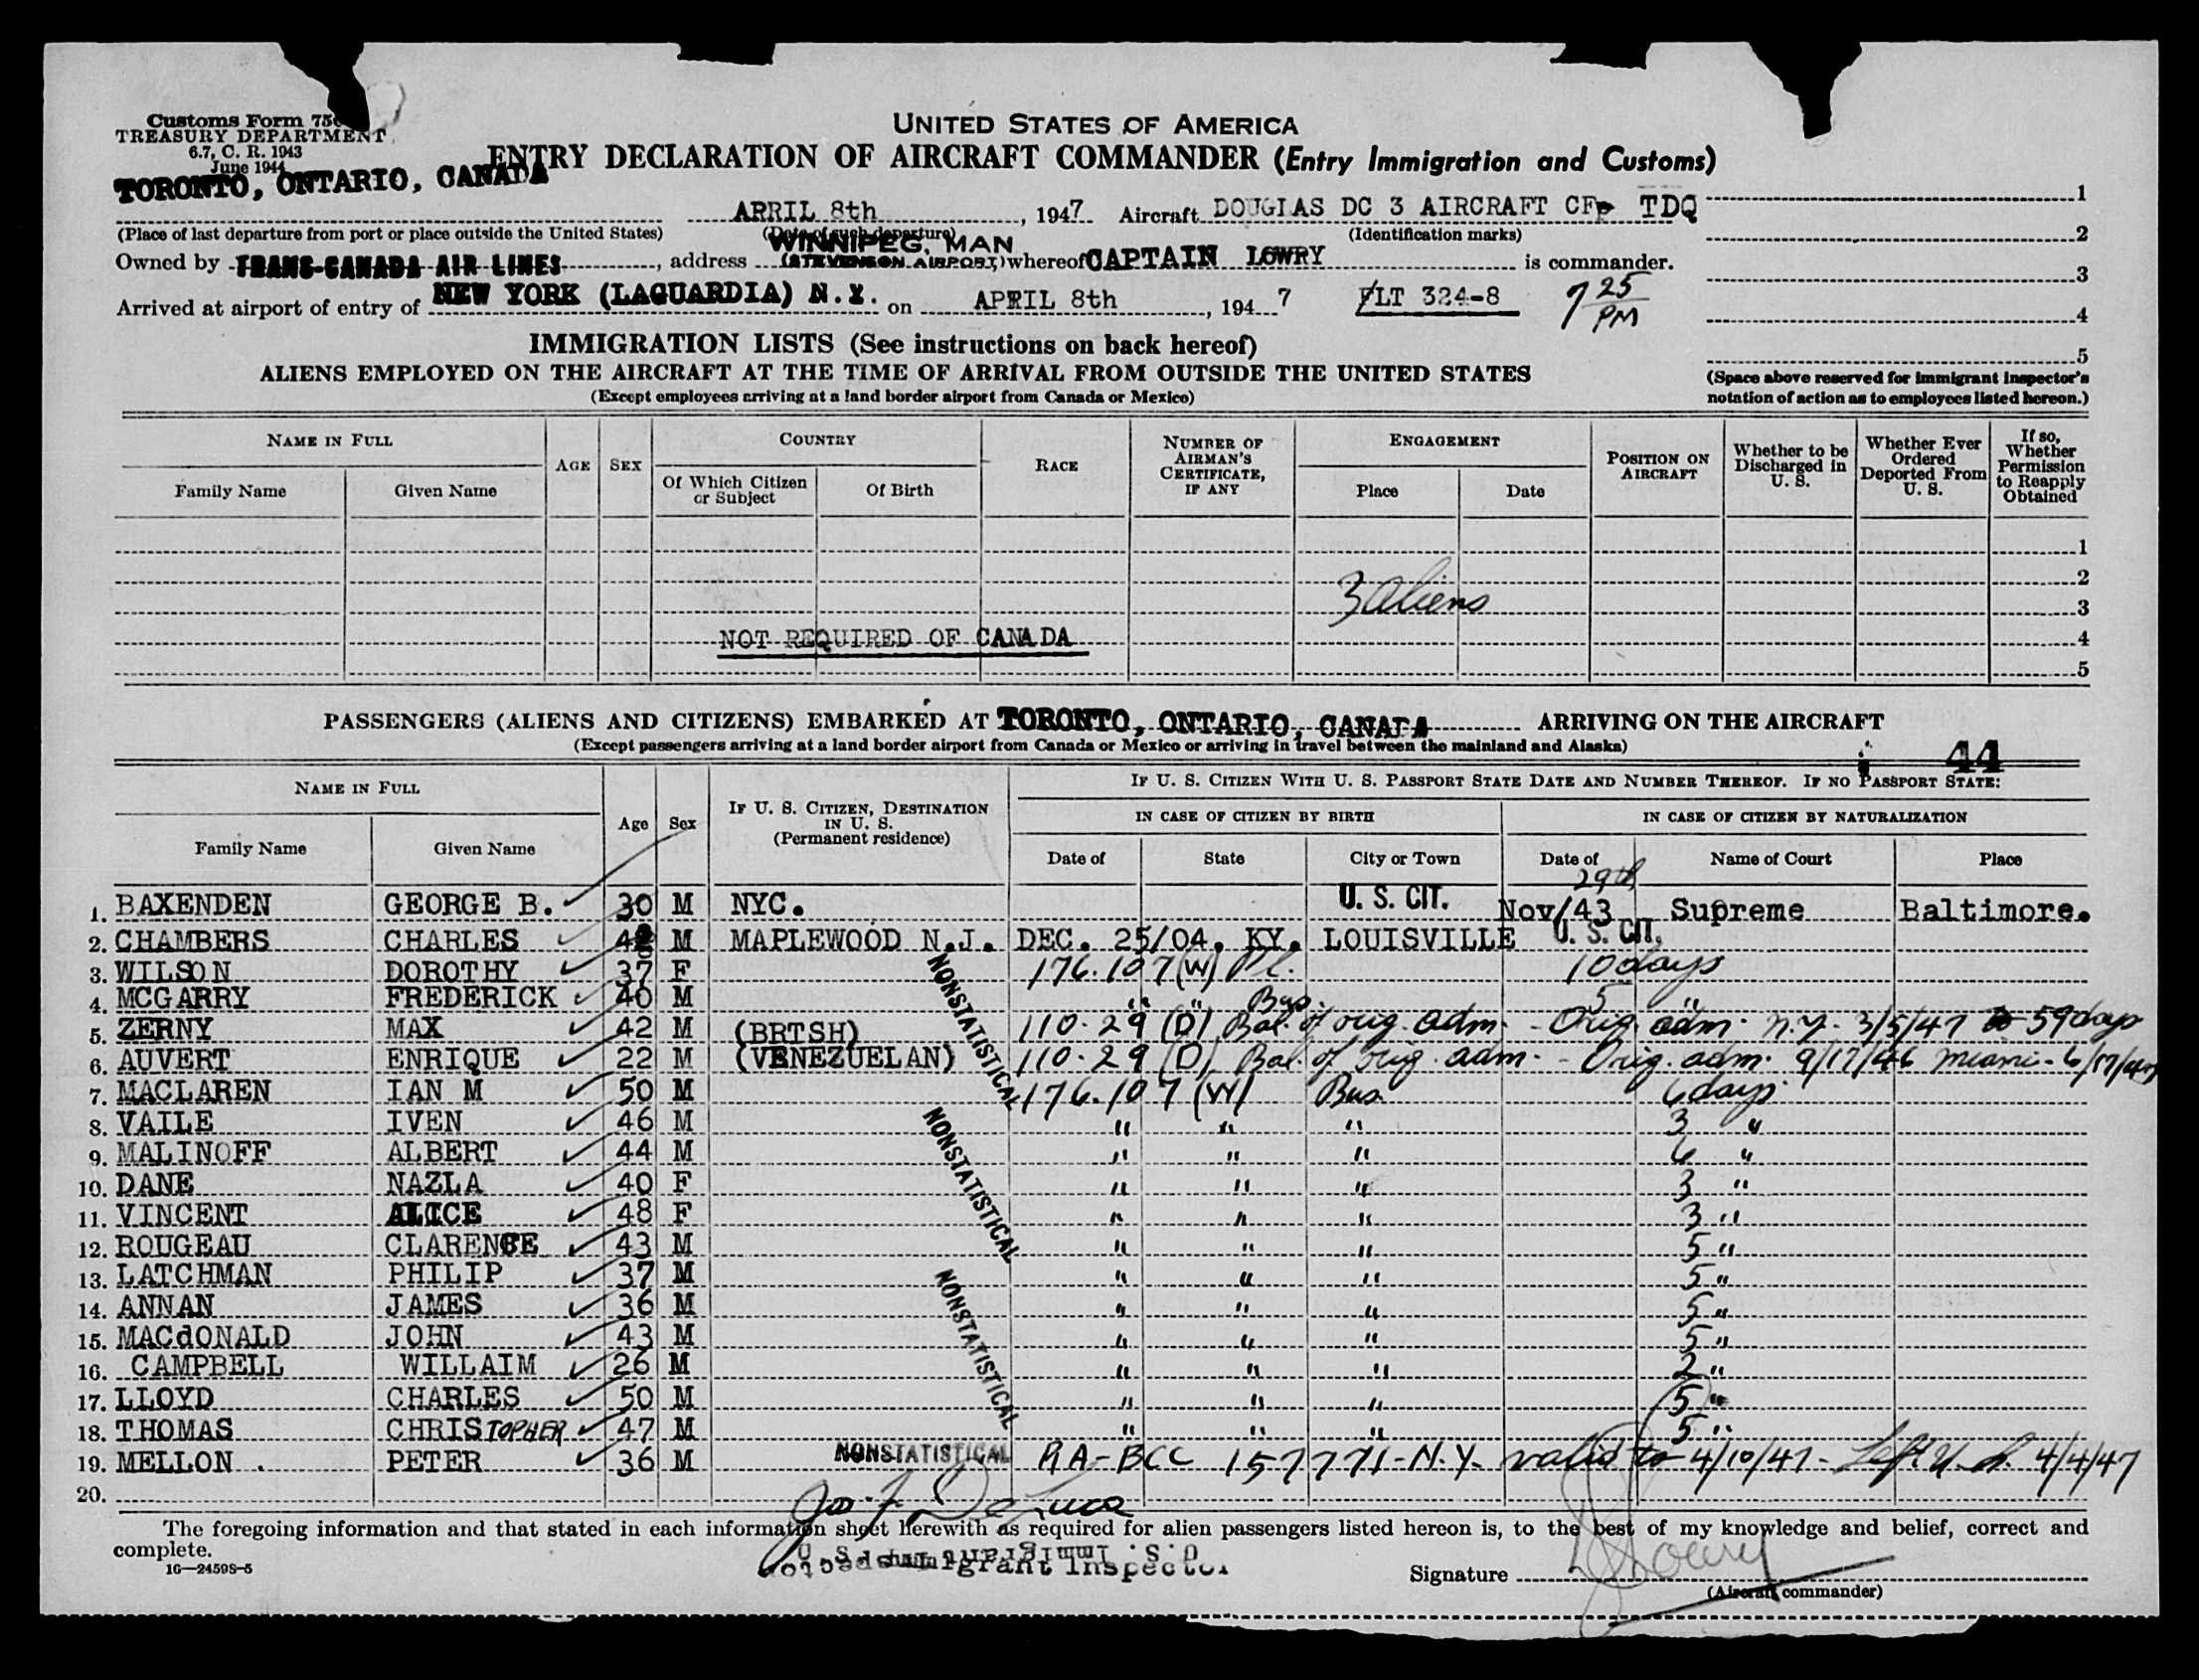 Customs Form 75
TREASURY DEPARTMENT
6.7, C. R. 1943
June 1944
UNITED STATES OF AMERICA
ENTRY DECLARATION OF AIRCRAFT COMMANDER (Entry Immigration and Customs)
TORONTO, ONTARIO, CANADA
APRIL 8th, 1947 Aircraft DOUGLAS DC 3 AIRCRAFT CF TDQ
(Place of last departure from port or place outside the United States) (Date of such departure) (Identification marks)
WINNIPEG, MAN
Owned by TRANS-CANADA AIR LINES, address (STEVENSON AIRPORT) whereof CAPTAIN LOWRY is commander.
Arrived at airport of entry of NEW YORK (LAGUARDIA) N.Y. on APRIL 8th, 1947 FLT 324-8 7 25 PM
1
2
3
4
5
(Space above reserved for immigrant inspector's
notation of action as to employees listed hereon.)
IMMIGRATION LISTS (See instructions on back hereof)
ALIENS EMPLOYED ON THE AIRCRAFT AT THE TIME OF ARRIVAL FROM OUTSIDE THE UNITED STATES
(Except employees arriving at a land border airport from Canada or Mexico)
NAME IN FULL
Family Name Given Name
AGE SEX
COUNTRY
Of Which Citizen or Subject Of Birth
RACE
NUMBER OF AIRMAN'S CERTIFICATE, IF ANY
ENGAGEMENT
Place Date
POSITION ON AIRCRAFT
Whether to be Discharged in U. S.
Whether Ever Ordered Deported From U. S.
If so, Whether Permission to Reapply Obtained
1
2
3 aliens 3
NOT REQUIRED OF CANADA 4
5
PASSENGERS (ALIENS AND CITIZENS) EMBARKED AT TORONTO, ONTARIO, CANADA ARRIVING ON THE AIRCRAFT
(Except passengers arriving at a land border airport from Canada or Mexico or arriving in travel between the mainland and Alaska)
44
NAME IN FULL
Family Name Given Name
Age Sex
IF U. S. CITIZEN, DESTINATION IN U. S. (Permanent residence)
IF U. S. CITIZEN WITH U. S. PASSPORT STATE DATE AND NUMBER THEREOF. IF NO PASSPORT STATE:
IN CASE OF CITIZEN BY BIRTH IN CASE OF CITIZEN BY NATURALIZATION
Date of State City or Town Date of Name of Court Place
1. BAXENDEN GEORGE B. 30 M NYC. U. S. CIT. Nov/43 29th Supreme Baltimore.
2. CHAMBERS CHARLES 42 M MAPLEWOOD N.J. DEC. 25/04. KY. LOUISVILLE U. S. CIT.
3. WILSON DOROTHY 37 F 176.107 (W) Pl. 10 days
4. MCGARRY FREDERICK 40 M " " Bus. 5 "
5. ZERNY MAX 42 M (BRTSH) 110.29 (D) Bal. of orig. adm. - Orig. adm. N.Y. 3/5/47 to 59 days
6. AUVERT ENRIQUE 22 M (VENEZUELAN) 110.29 (D) Bal. of orig. adm. - Orig. adm. 9/17/46 Miami - 6/17/47
7. MACLAREN IAN M 50 M 176.107 (W) Bus. 6 days
8. VAILE IVEN 46 M " " " 3 "
9. MALINOFF ALBERT 44 M " " " 6 "
10. DANE NAZLA 40 F " " " 3 "
11. VINCENT ALICE 48 F " " " 3 "
12. ROUGEAU CLARENCE 43 M " " " 5 "
13. LATCHMAN PHILIP 37 M " " " 5 "
14. ANNAN JAMES 36 M " " " 5 "
15. MACdONALD JOHN 43 M " " " 5 "
16. CAMPBELL WILLAIM 26 M " " " 2 "
17. LLOYD CHARLES 50 M " " " 5 "
18. THOMAS CHRISTOPHER 47 M " " " 5 "
19. MELLON PETER 36 M NONSTATISTICAL RA-BCC 157771-N.Y. valid to 4/10/47 - Left U.S. 4/4/47
20.
NONSTATISTICAL
NONSTATISTICAL
NONSTATISTICAL
Jos. F. De Luca
The foregoing information and that stated in each information sheet herewith as required for alien passengers listed hereon is, to the best of my knowledge and belief, correct and
complete.
16—24598-5
U.S. Immigrant Inspector
Signature Lowry
(Aircraft commander)